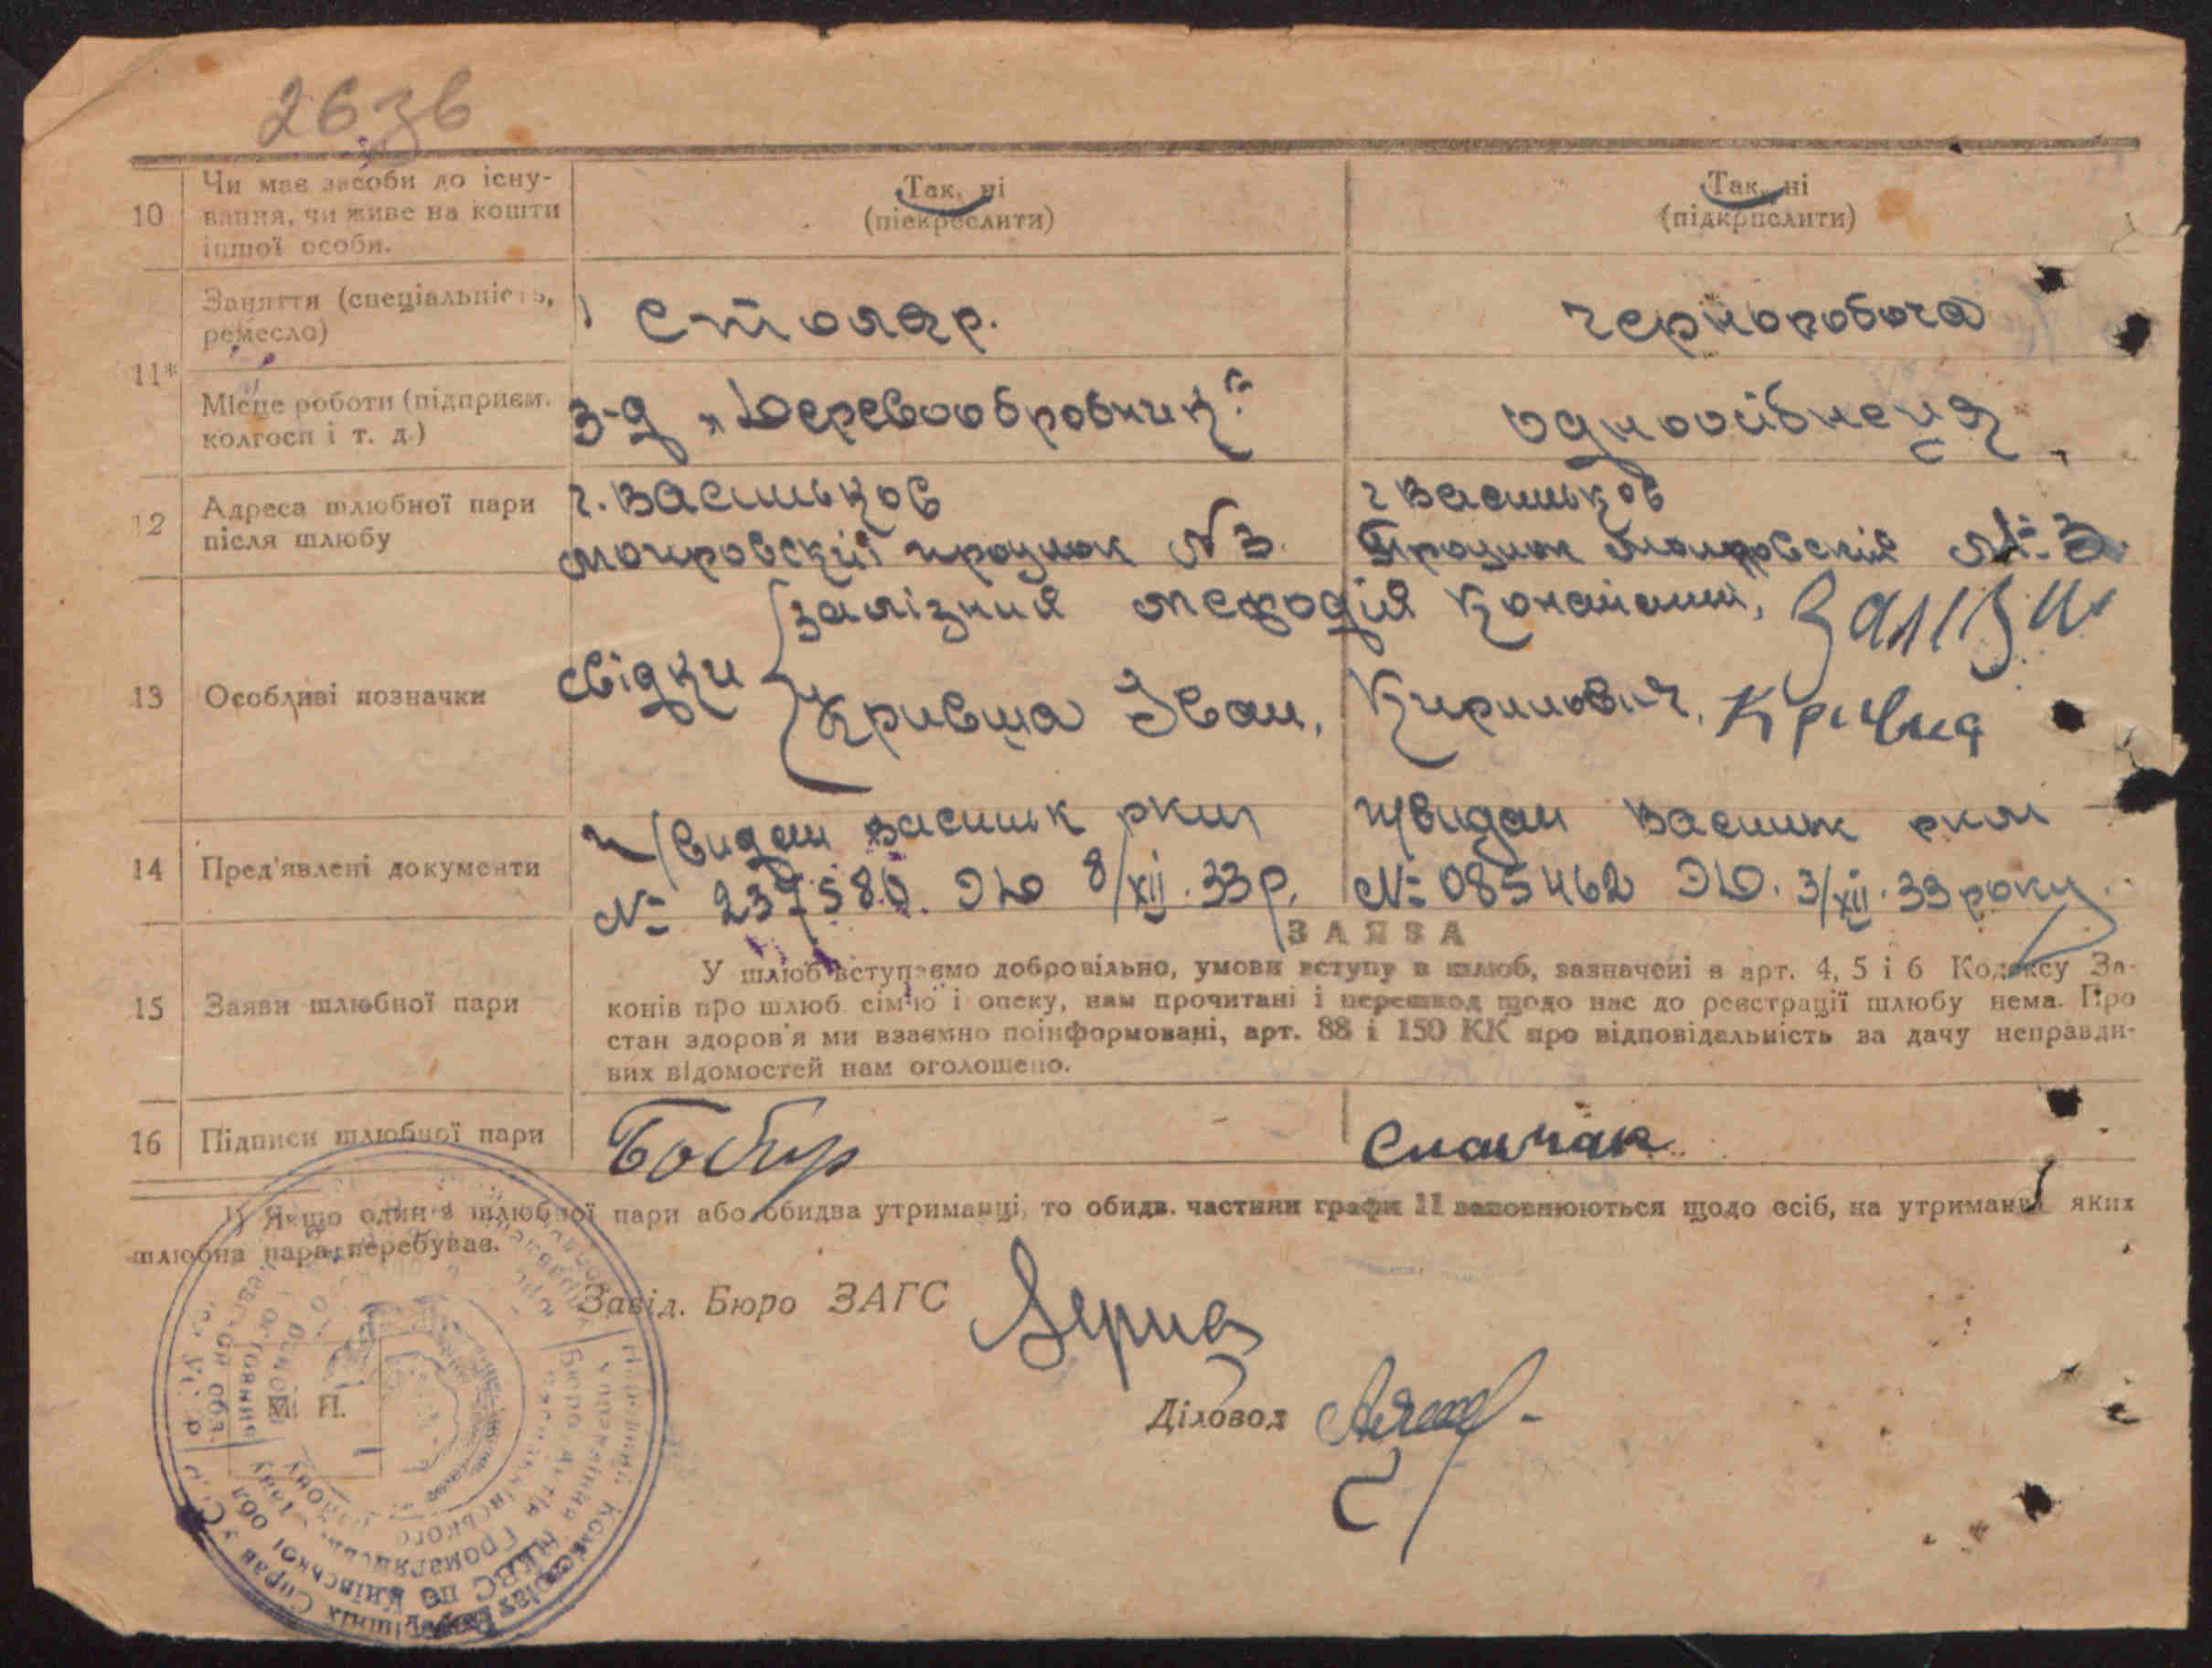 26 зв
10 Чи має засоби до існу-
вання, чи живе на кошти
іншої особи.
Так, ні
(підкреслити)
Так, ні
(підкрислити)
11*
Заняття (спеціальність,
ремесло)
Столяр.
черноробоча
Місце роботи (підприєм.
колгосп і т. д.)
З-д „Деревообробник"
12 Адреса шлюбної пари
після шлюбу
г. Васильков
провулок № 3.
г Васильков
13 Особливі позначки
свідки
Залізний Мефодій
Кривша Іван, Кирилович,
14 Пред'явлені документи
п/видан Васильк ркм
№ 237580. ЭЮ 8/XII. 33 р.
п/видан Васильк ркм
№ 085462 ЭЮ. 3/XII. 33 року.
ЗАЯВА
15 Заяви шлюбної пари
У шлюб вступаємо добровільно, умови вступу в шлюб, зазначені в арт. 4, 5 і 6 Кодексу За-
конів про шлюб сім'ю і опеку, нам прочитані і перешкод щодо нас до реєстрації шлюбу нема. Про
стан здоров'я ми взаємно поінформовані, арт. 88 і 150 КК про відповідальність за дачу неправди-
вих відомостей нам оголошено.
16 Підписи шлюбної пари
Бобир
1) Якщо один з шлюбної пари або обидва утриманці, то обидв. частини графи 11 заповнюються щодо осіб, на утриманні яких
шлюбна пара перебуває.
Завід. Бюро ЗАГС
Діловод
М. П.
Комісаріат Внутрішніх Справ УСРР
НКВС по Київській обл.